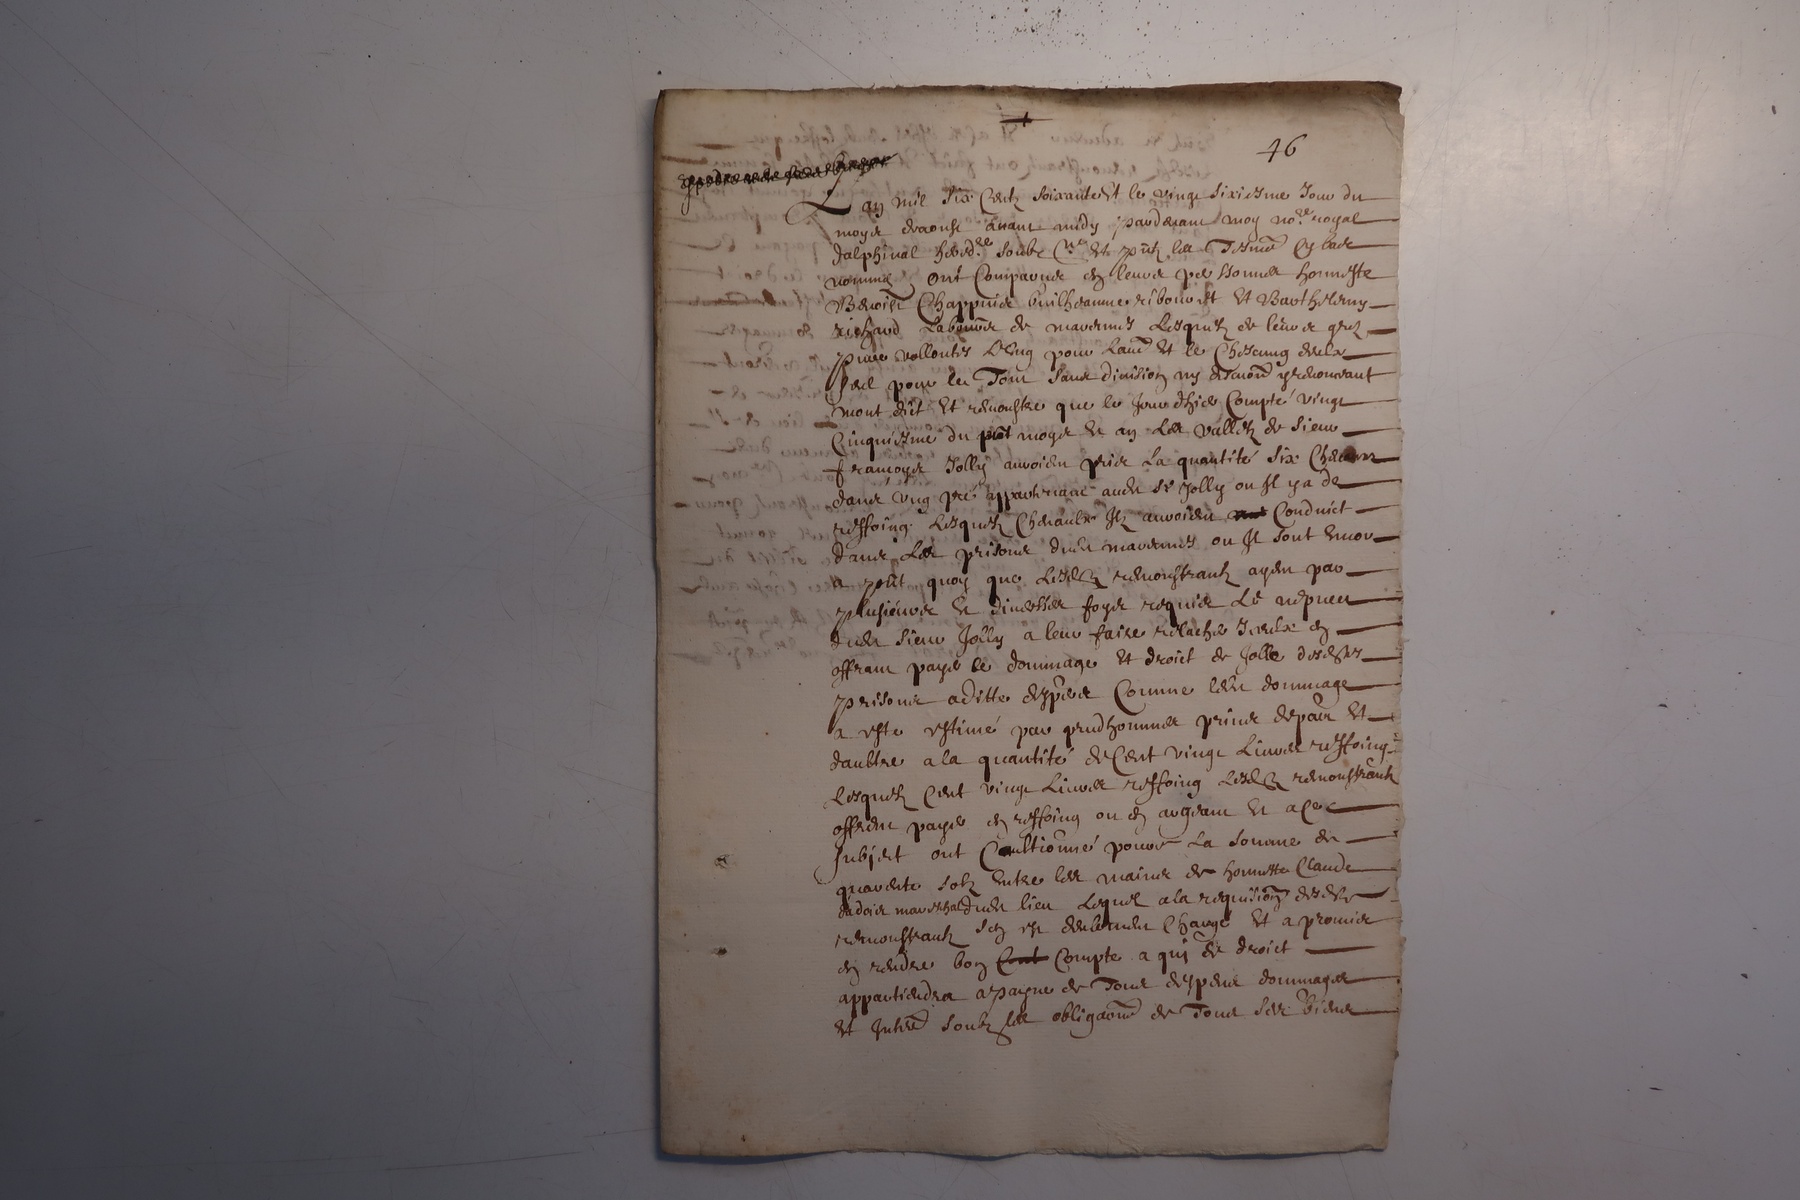 46
Lan mil six centz soixante et le vingt sixiesme Jour du
moys daoust avant midy pardevant moy nore royal
dalphinal hered.re soubz.ne et pntz les tesmo cy bas
nommes ont Comparus en leurs personnes honneste
Benoist Chappuis Guilheaume ribouet et Barthelemy
richard Laboure de mavernes Lesquelz de leurs grez
pures vollontes Lung pour Lau et le Chescung deulx
seul pour le Tout sans division ny discuon y renoncant
mont dit et remonstre que le Jour dhier Compte vingt
Cinquiesme du pnt moys et an Les valletz de sieur
francoys Jolly avoient pries La quantité six Chevaux
dans ung pré appartenant audt sr Jolly ou Il y a de
reffoing Lesquelz Chevaulx Ilz avoient Conduict
dans Les prisons dudt mavernes ou Il sont encor
a pnt quoy que Lesdtz remonstrantz ayent par
plusieurs et diverses foys requis Le nepveu
dudt sieur Jolly a leur faire relacher Iceulx en
offrant payer le dommage et droict de Jolle desdtes
prisons Comme ledt dommage
a este estimé par prudhommes prins despart et
daultre a la quantité de Cent vingt Livres reffoing
Lesquelz Cent vingt Livres reffoing Lesdtz remonstrantz
offrent payer en reffoing ou en argeant et a Ce
subject ont Caultionné pour La somme de
quarente solz entre les mains de honneste Claude
mareschal dudt lieu Lequel a la requisition desdts
remonstrantz sen est Chargé et a promis
en rendre bon Compte a qui de droict
appartiendra a payne de Tous despens dommages
et Intrest soubz les obligaons de Tous ses biens